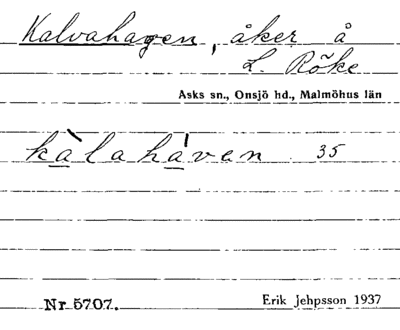 Kalvahagen, åker å
L. Röke
Asks sn., Onsjö hd., Malmöhus län
kàlaháven 35
Nr 5707.
Erik Jehpsson 1937